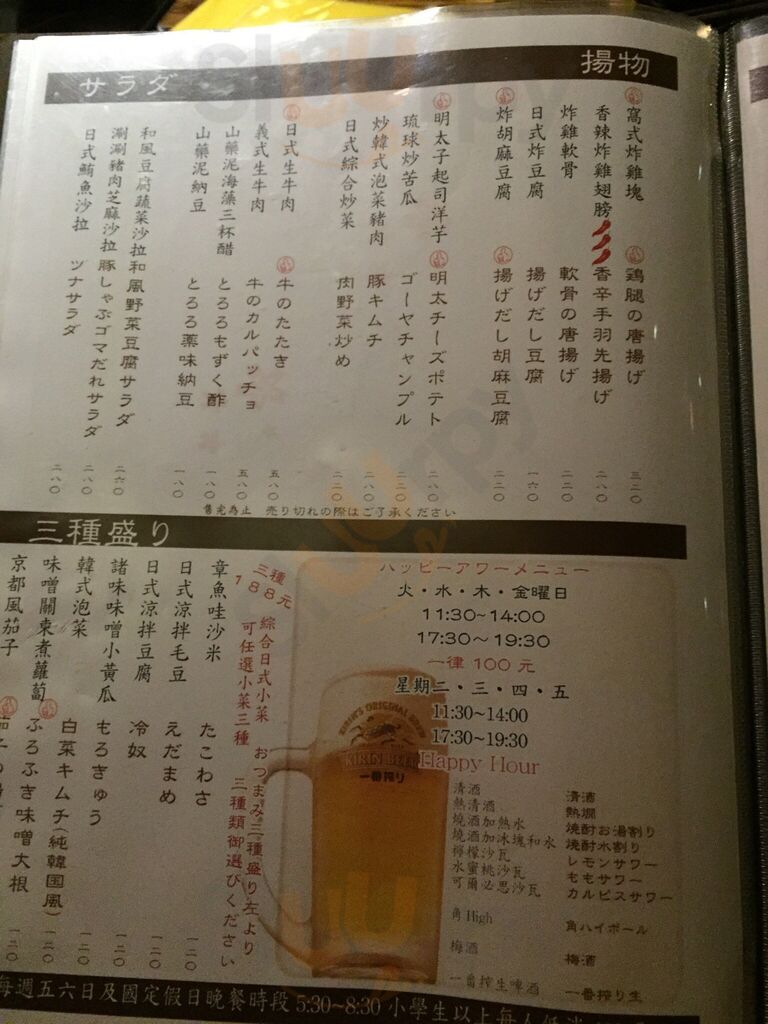 揚物
サラダ
窩式炸雞塊 鶏腿の唐揚げ 三二〇
香辣炸雞翅膀 香辛手羽先揚げ 二八〇
炸雞軟骨 軟骨の唐揚げ 二二〇
日式炸豆腐 揚げだし豆腐 一六〇
炸胡麻豆腐 揚げだし胡麻豆腐 二二〇
明太子起司洋芋 明太チーズポテト 二八〇
琉球炒苦瓜 ゴーヤチャンプル 二二〇
炒韓式泡菜豬肉 豚キムチ 二八〇
日式綜合炒菜 肉野菜炒め 二二〇
日式生牛肉 牛のたたき 五八〇
義式生牛肉 牛のカルパッチョ 五八〇
山藥泥海藻三杯醋 とろろもずく酢 一八〇
山藥泥納豆 とろろ薬味納豆 一八〇
和風豆腐蔬菜沙拉 和風野菜豆腐サラダ 二六〇
涮涮豬肉芝麻沙拉 豚しゃぶゴマだれサラダ 二八〇
日式鮪魚沙拉 ツナサラダ 二八〇
售完為止 売り切れの際はご了承ください
三種盛り
三種
188元
綜合日式小菜 おつまみ三種盛り左より
可任選小菜三種 三種類御選びください
章魚哇沙米 たこわさ 一二〇
日式涼拌毛豆 えだまめ 一二〇
日式涼拌豆腐 冷奴 一二〇
諸味味噌小黃瓜 もろきゅう 一二〇
韓式泡菜 白菜キムチ(純韓国風) 一二〇
味噌關東煮蘿蔔 ふろふき味噌大根 一二〇
京都風茄子
ハッピーアワーメニュー
火・水・木・金曜日
11:30~14:00
17:30~19:30
一律 100 元
星期二・三・四・五
11:30~14:00
17:30~19:30
Happy Hour
KIRIN'S ORIGINAL BREW
KIRIN BEER
一番搾り
清酒 清酒
熱清酒 熱燗
燒酒加熱水 焼酎お湯割り
燒酒加冰塊和水 焼酎水割り
檸檬沙瓦 レモンサワー
水蜜桃沙瓦 ももサワー
可爾必思沙瓦 カルピスサワー
角High 角ハイボール
梅酒 梅酒
一番搾生啤酒 一番搾り生
每週五六日及國定假日晚餐時段 5:30~8:30 小學生以上每人低消